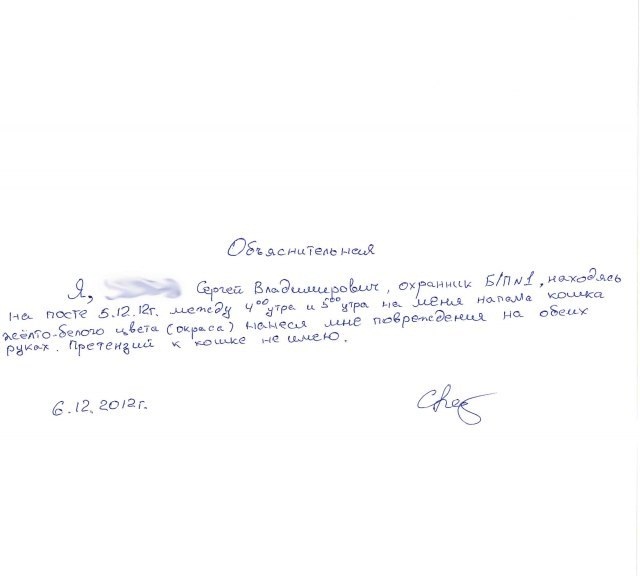 Объяснительная
Я, Сергей Владимирович, охранник Б/П №1, находясь
на посте 5.12.12г. между 4⁰⁰ утра и 5⁰⁰ утра на меня напала кошка
жёлто-белого цвета (окраса) нанеся мне повреждения на обеих
руках. Претензий к кошке не имею.
6.12.2012г.